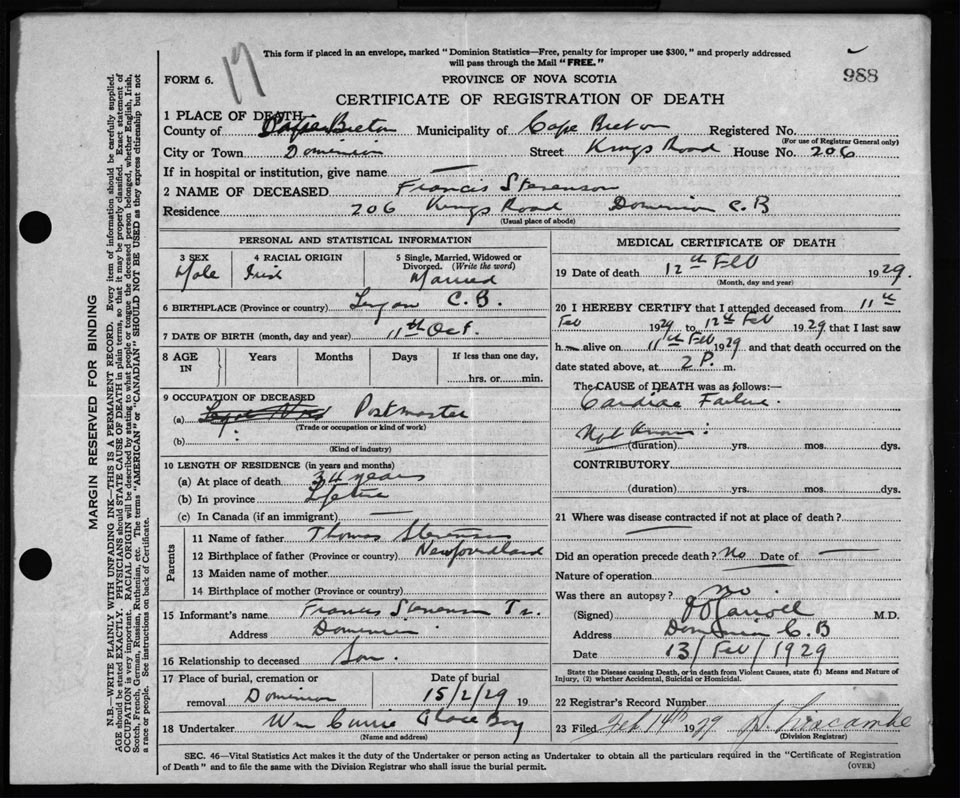 This form if placed in an envelope, marked "Dominion Statistics—Free, penalty for improper use $300," and properly addressed
will pass through the Mail "FREE."
17
988
FORM 6.
PROVINCE OF NOVA SCOTIA
CERTIFICATE OF REGISTRATION OF DEATH
1 PLACE OF DEATH—
County of Cape Breton Municipality of Cape Breton Registered No.
(For use of Registrar General only)
City or Town Dominion Street Kings Road House No. 206
If in hospital or institution, give name —
2 NAME OF DECEASED Francis Stevenson
Residence 206 Kings Road Dominion C.B
(Usual place of abode)
PERSONAL AND STATISTICAL INFORMATION
3 SEX 4 RACIAL ORIGIN 5 Single, Married, Widowed or
Divorced. (Write the word)
Male Irish Married
6 BIRTHPLACE (Province or country) Lingan C.B.
7 DATE OF BIRTH (month, day and year) 11th Oct.
8 AGE IN Years Months Days If less than one day,
hrs. or min.
9 OCCUPATION OF DECEASED
(a) Postmaster
(Trade or occupation or kind of work)
(b)
(Kind of industry)
10 LENGTH OF RESIDENCE (in years and months)
(a) At place of death 34 years
(b) In province Lifetime
(c) In Canada (if an immigrant) —
Parents
11 Name of father Thomas Stevenson
12 Birthplace of father (Province or country) Newfoundland
13 Maiden name of mother
14 Birthplace of mother (Province or country)
15 Informant's name Francis Stevenson Jr.
Address Dominion
16 Relationship to deceased Son.
17 Place of burial, cremation or Date of burial
removal Dominion 15/2/29 19
18 Undertaker Wm Currie Glace Bay
(Name and address)
MEDICAL CERTIFICATE OF DEATH
19 Date of death 12th Feb 1929.
(Month, day and year)
20 I HEREBY CERTIFY that I attended deceased from 11th
Feb 1929 to 12th Feb 1929 that I last saw
h m alive on 11th Feb 1929 and that death occurred on the
date stated above, at 2 P. m.
The CAUSE of DEATH was as follows:—
Cardiac Failure.
Not Known.
(duration) yrs. mos. dys.
CONTRIBUTORY
(duration) yrs. mos. dys.
21 Where was disease contracted if not at place of death?
—
Did an operation precede death? No Date of —
Nature of operation
Was there an autopsy? No
(Signed) M.D.
Address Dominion C.B
Date 13/Feb/1929
State the Disease causing Death, or in death from Violent Causes, state (1) Means and Nature of
Injury, (2) whether Accidental, Suicidal or Homicidal.
22 Registrar's Record Number
23 Filed Feb 14th 1929
(Division Registrar)
SEC. 46—Vital Statistics Act makes it the duty of the Undertaker or person acting as Undertaker to obtain all the particulars required in the "Certificate of Registration
of Death" and to file the same with the Division Registrar who shall issue the burial permit.
(OVER)
MARGIN RESERVED FOR BINDING
N.B.—WRITE PLAINLY WITH UNFADING INK—THIS IS A PERMANENT RECORD. Every item of information should be carefully supplied.
AGE should be stated EXACTLY. PHYSICIANS should STATE CAUSE OF DEATH in plain terms, so that it may be properly classified. Exact statement of
OCCUPATION is very important. RACIAL ORIGIN will be described by stating to what people or tongue the deceased person belonged, whether English, Irish,
Scotch, French, German, Russian, Ruthenian, etc. The terms "AMERICAN" or "CANADIAN" SHOULD NOT BE USED as they express citizenship but not
a race or people. See instructions on back of Certificate.